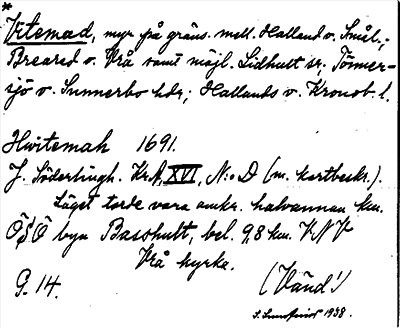 *
Vitemad, myr på gräns. mell. Halland o. Smål.;
Breared o. Vrå samt möjl. Lidhult sr; Tönner-
sjö o. Sunnerbo hdr; Hallands o. Kronob. l.
Hwitemah 1691.
J. Söderlingh. Kr.A, XVI, N:o D (m. kartbeskr.).
Läget torde vara omkr. halvannan km.
ÖSÖ byn Basshult, bel. 9,8 km. VNV
Vrå kyrka.
G. 14.
(Vänd!)
1938.